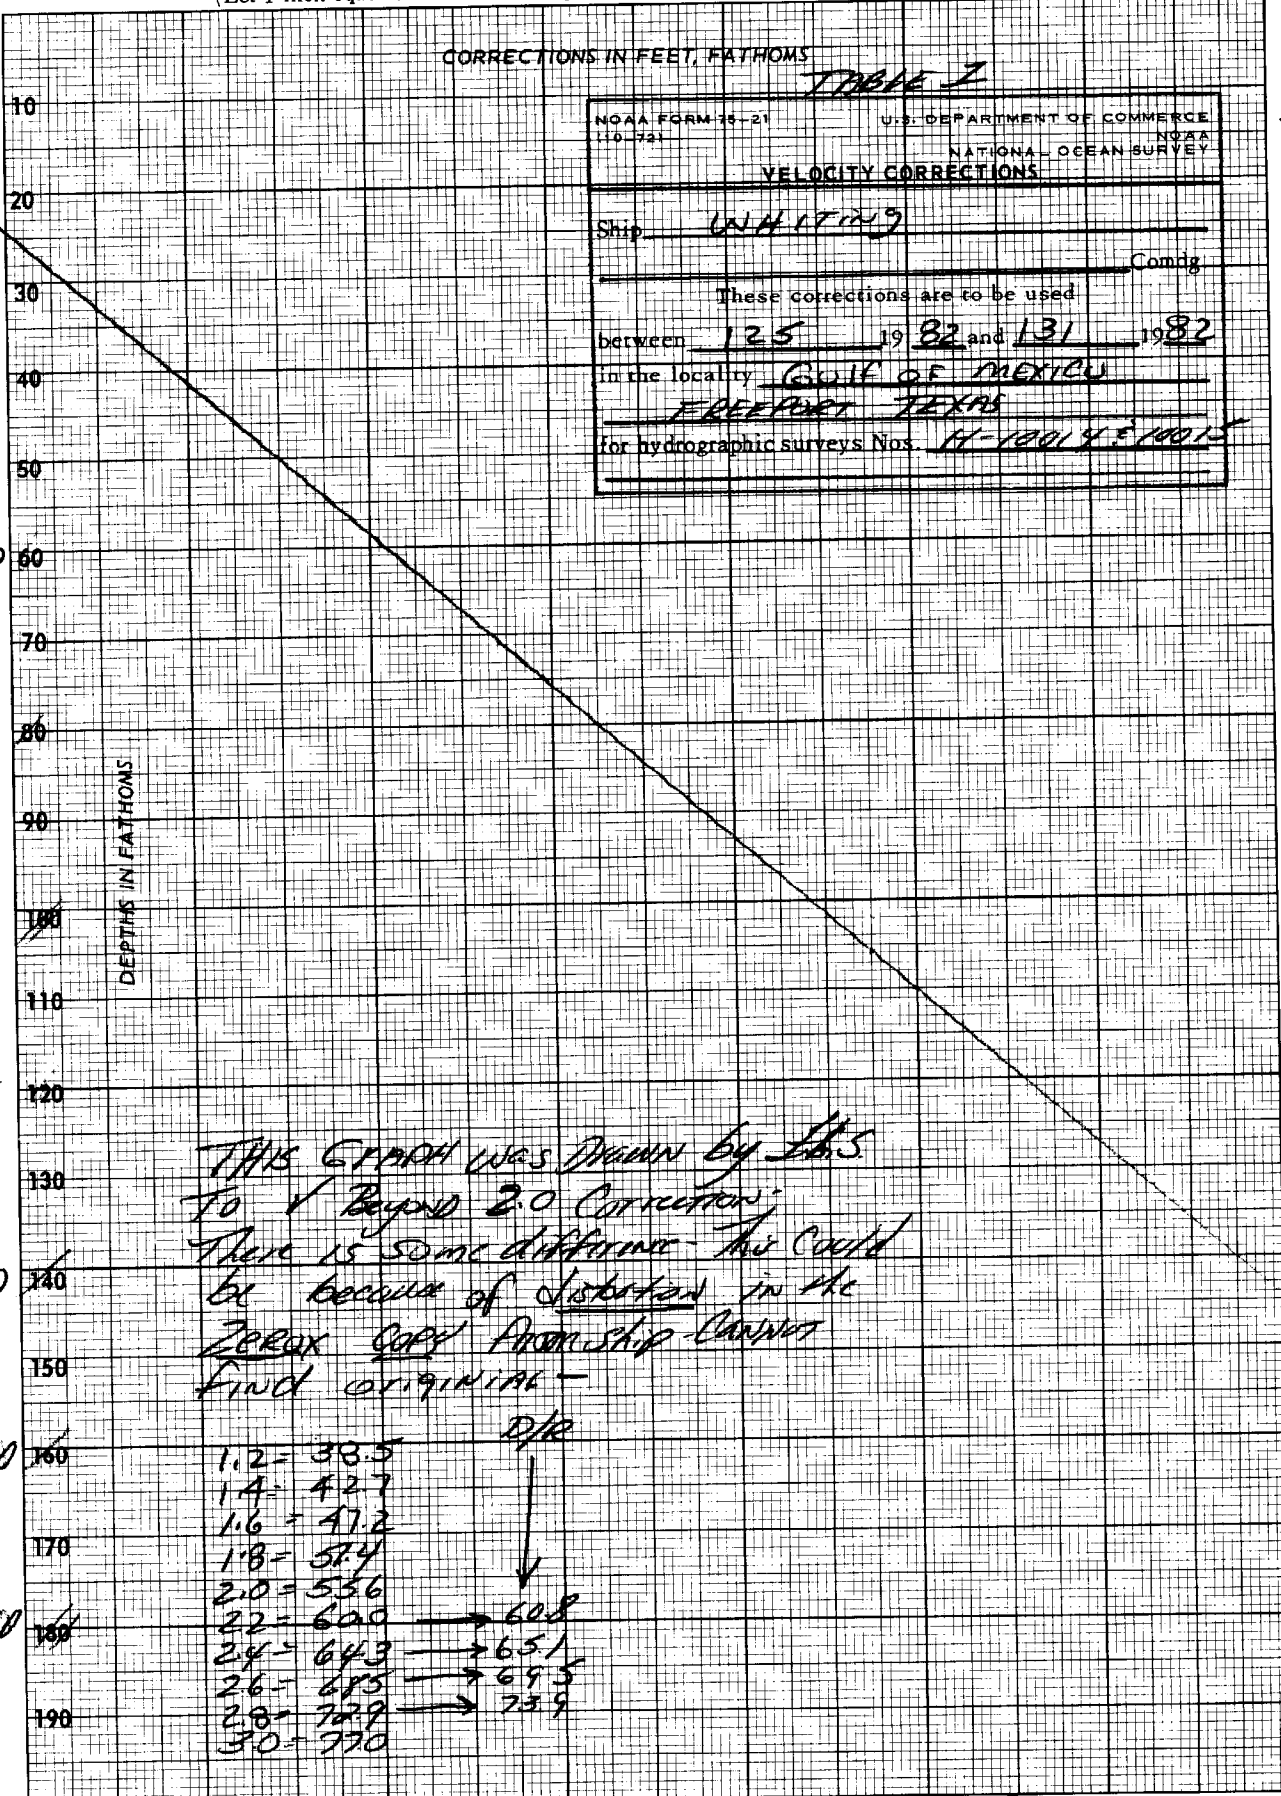 CORRECTIONS IN FEET, FATHOMS
TABLE I
NOAA FORM 75-21
(10-72)
U.S. DEPARTMENT OF COMMERCE
NOAA
NATIONAL OCEAN SURVEY
VELOCITY CORRECTIONS
Ship WHITING
Comdg
These corrections are to be used
between 125 1982 and 131 1982
in the locality GULF OF MEXICO
FREEPORT TEXAS
for hydrographic surveys Nos. H-10014 & 10015
10
20
30
40
50
60
70
80
90
100
110
120
130
140
150
160
170
180
190
DEPTHS IN FATHOMS
THIS GRAPH WAS DRAWN by
To ✓ Beyond 2.0 Correction.
There is some difference - This Could
be because of distortion in the
Zerox Copy From ship - CANNOT
find originial —
D/R
1.2 = 38.5
1.4 = 42.7
1.6 = 47.2
1.8 = 51.4
2.0 = 55.6
2.2 = 60.0 → 60.8
2.4 = 64.3 → 65.1
2.6 = 68.5 → 69.5
2.8 = 72.9 → 73.9
3.0 = 77.0